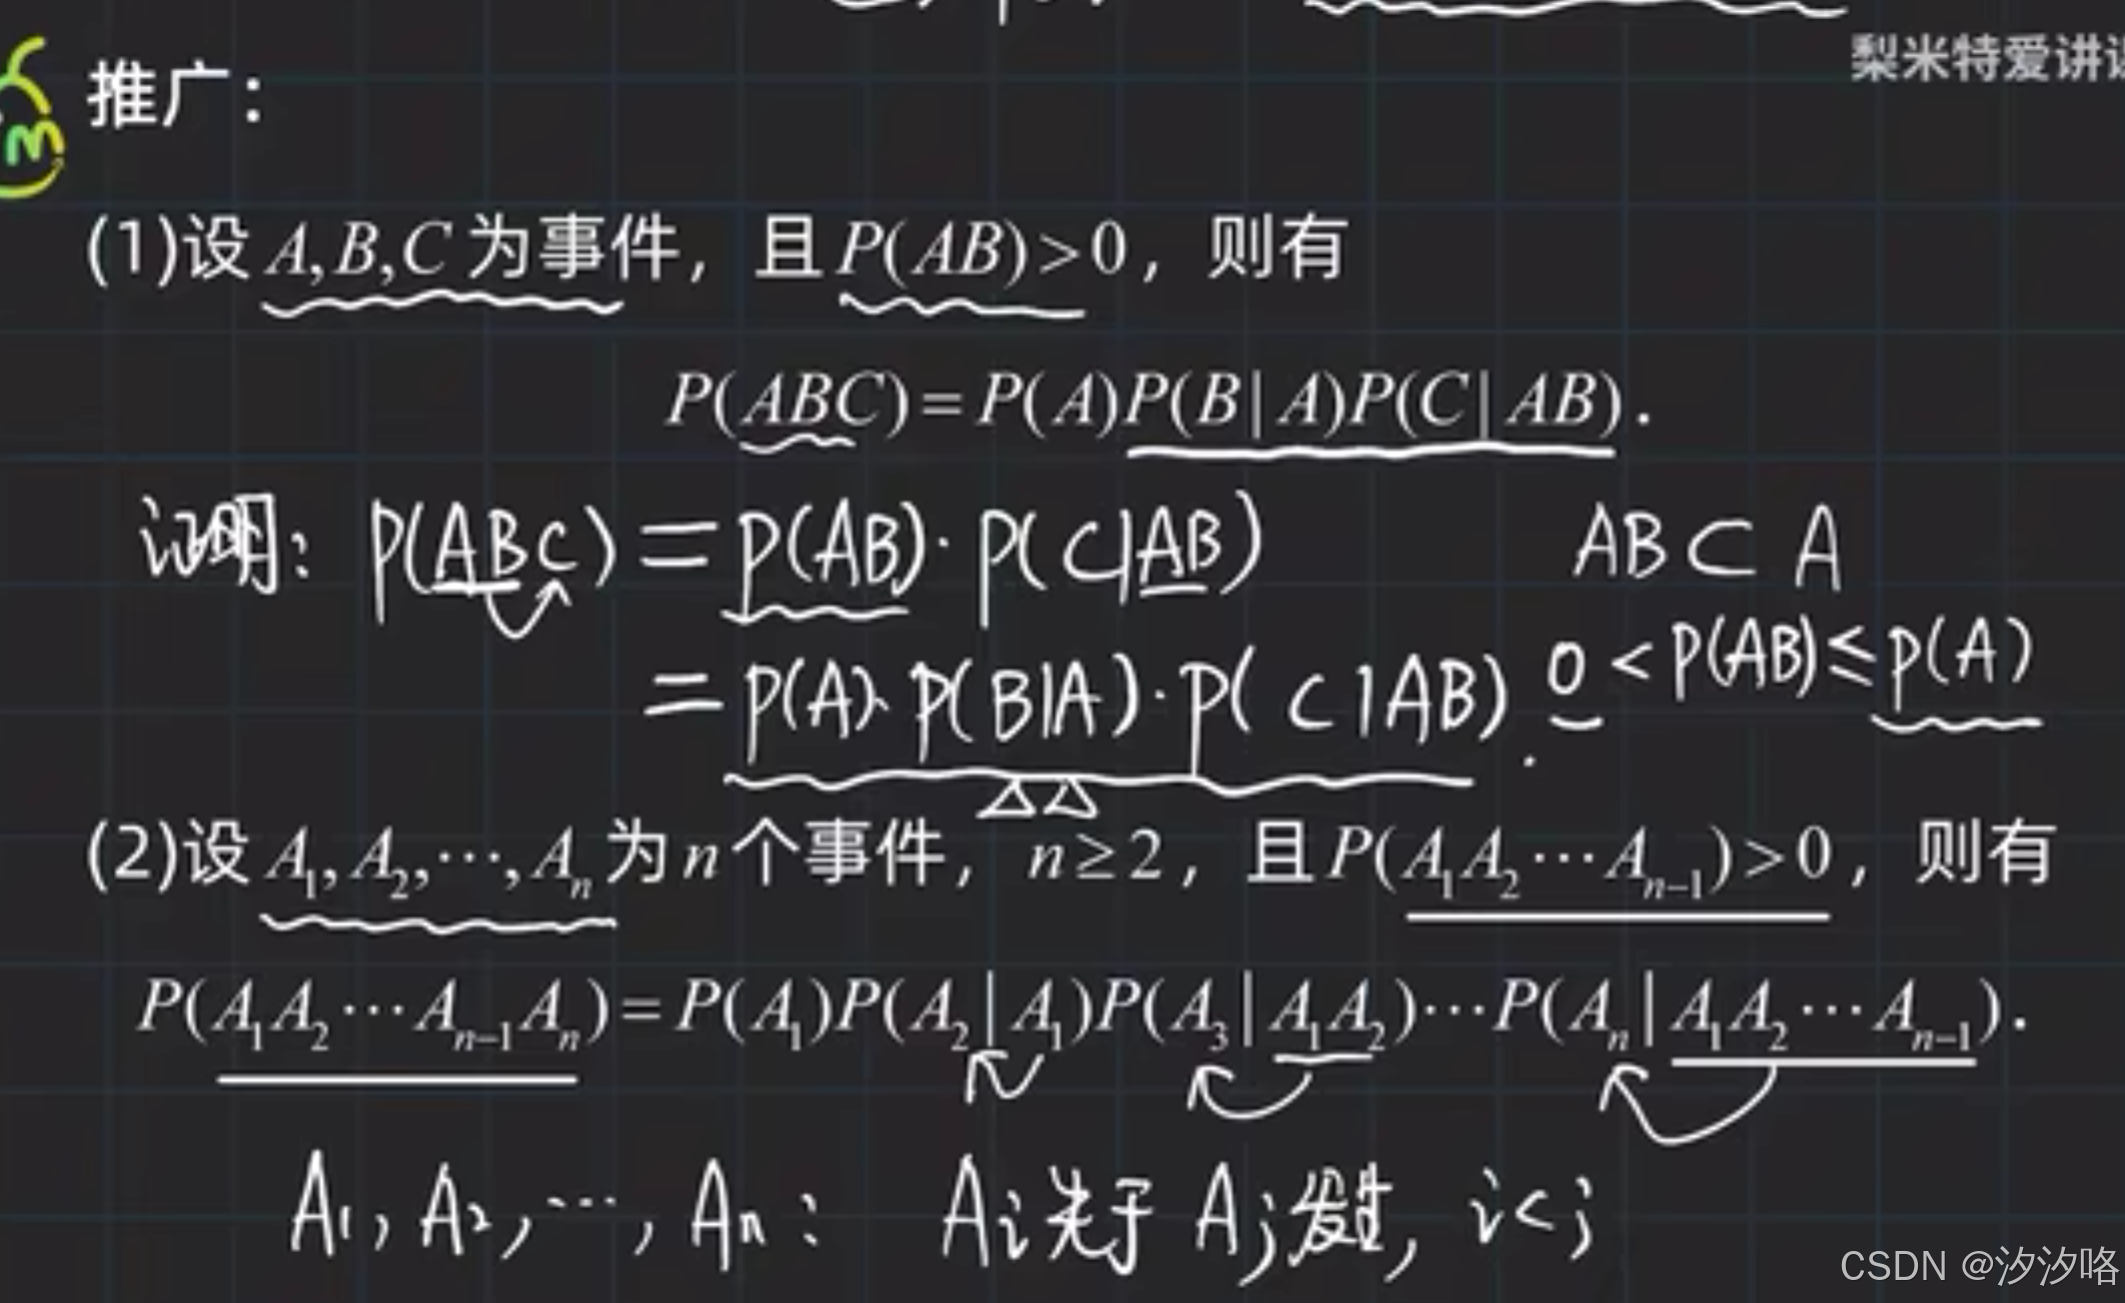 梨米特爱讲
推广：
(1)设 A,B,C 为事件，且 P(AB)>0，则有
P(ABC)=P(A)P(B|A)P(C|AB).
证明: P(ABC) = P(AB)· P(C|AB) AB ⊂ A
= P(A)· P(B|A)· P(C|AB). 0 < P(AB) ≤ P(A)
(2)设 A₁,A₂,⋯,Aₙ 为 n 个事件，n≥2，且 P(A₁A₂⋯Aₙ₋₁)>0，则有
P(A₁A₂⋯Aₙ₋₁Aₙ)=P(A₁)P(A₂|A₁)P(A₃|A₁A₂)⋯P(Aₙ|A₁A₂⋯Aₙ₋₁).
A₁, A₂, ⋯, Aₙ: Aᵢ先于 Aⱼ发生, i<j
CSDN @汐汐咯